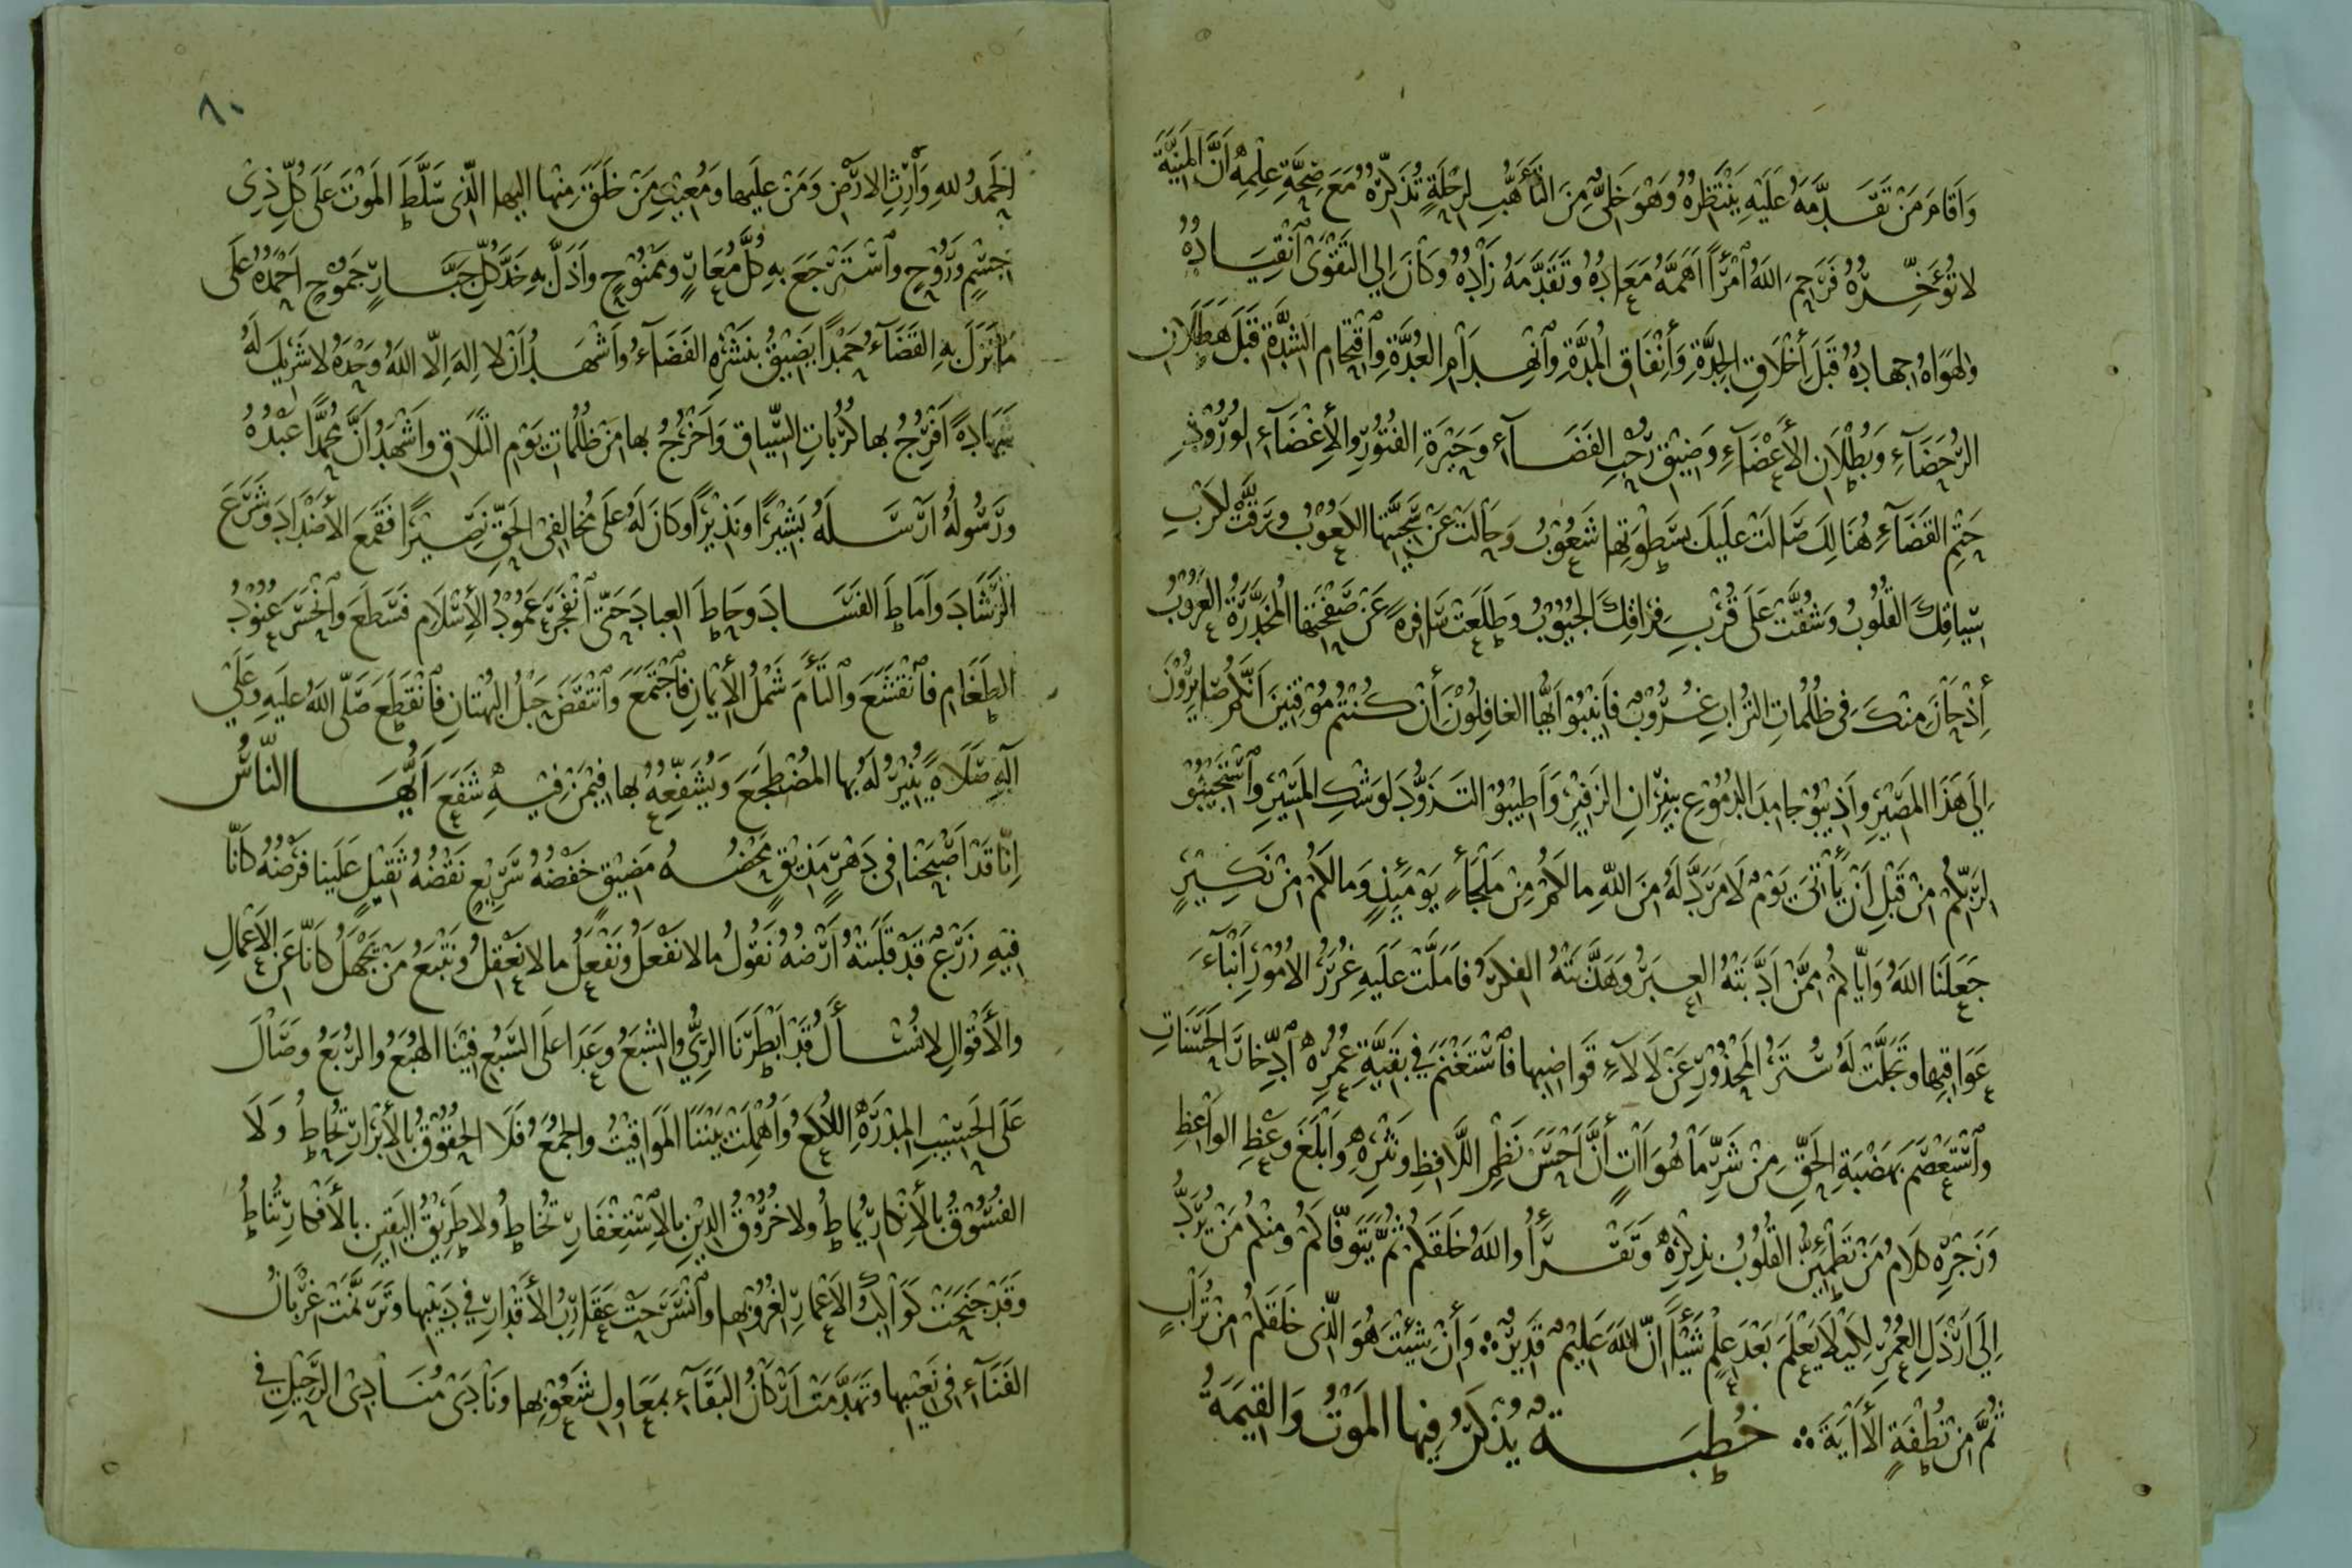 وَاَقَامَ مَنْ تَقَدَّمَهُ عَلَيْهِ يَنْتَظِرُهُ وَهُوَ خَلِىٌّ مِنَ التَّأَهُّبِ لِرِحْلَةٍ تُذَكِّرُهُ مَعَ صِحَّةِ عِلْمِهِ اَنَّ المَنِيَّةَ
لا تُؤَخِّرُهُ فَرَحِمَ اللهُ اُمْرَأً اَهَمَّهُ مَعَادُهُ وَتَقَدَّمَهُ زَادُهُ وَكَانَ اِلَى التَّقْوَى اَنْقِيَادُهُ
وَلِهَوَاهُ جِهَادُهُ قَبْلَ أِخْلَاقِ الجِدَّةِ وَأِنْفَاقِ المُدَّةِ وَاَنْهِدَامِ العُدَّةِ وَاَقْتِحَامِ الشِّدَّةِ قَبْلَ هَطَلَانِ
الرُّحَضَآءِ وَبُطْلَانِ الأَعْضَآءِ وَضِيْقِ رَحْبِ الفَضَآءِ وَحَيْرَةِ الفُتُوْرِ وَالأِغْضَآءِ لِوُرُوْدِ
حَتْمِ القَضَآءِ هُنَالِكَ صَالَتْ عَلَيْكَ بِسَطْوَتِهَا شَعُوْبُ وَحَالَتْ عَنْ سَجِيَّتِهَا اللَّعُوْبُ وَرَقَّتْ لِكَرْبِ
سِيَاقِكَ القُلُوبُ وَشُقَّتْ عَلَى قُرْبِ فِرَاقِكَ الجُيُوْبُ وَطَلَعَتْ سَافِرةً عَنْ صَفْحَتِهَا المُخَدَّرَةُ العَرُوْبُ
أِذْ حَانَ مِنْكَ فِى ظُلُمَاتِ التُّرَابِ غُرُوْبٌ فَاَنِيْبُوْا اَيُّهَا الغَافِلُوْنَ أَنْ كُنْتُمْ مُوْقِنِيْنَ اَنَّكُمْ صَايِرُوْنَ
اِلَى هَذَا المَصِيْرِ وَاَذِيْبُوْا جَامِدَ الدُّمُوْعِ بِنِيْرَانِ الزَّفِيْرِ وَاَطِيْبُوْا التَّزَوُّدَ لِوَشْكِ المَسِيْرِ وَاَسْتَجِيْبُوْا
لِرَبِّكُمْ مِنْ قَبْلِ اَنْ يَأْتِىَ يَوْمٌ لَا مَرَدَّ لَهُ مِنَ اللهِ مَا لَكُمْ مِنْ مَلْجَأٍ يَوْمَئِذٍ وَمَا لَكُمْ مِنْ نَكِيْرٍ
جَعَلَنَا اللهُ وَاِيَّاكُمْ مِمَّنْ اَدَّبَتْهُ العِبَرُ وَهَذَّبَتْهُ الفِكَرُ فَاَمَلَّتْ عَلَيْهِ غُرَرُ الأُمُوْرِ اَنْبَآءَ
عَوَاقِبِهَا وَتَجَلَّتْ لَهُ سُتَرُ المَحْذُوْرِ عَنْ لَالَآءِ قَوَاضِبِهَا فَاَسْتَغْنَمَ فِي بَقِيَّةِ عُمُرِهِ اَدِّخَارَ الحَسَنَاتِ
وَاَسْتَعْصَمَ بِهَضْبَةِ الحَقِّ مِنْ شَرِّ مَا هُوَ اَاتٍ أَنَّ اَحْسَنَ نَظْمِ اللَّافِظِ وَنَثْرِهِ وَاَبْلَغَ وَعْظِ الوَاعِظِ
وَزَجْرِهِ كَلَامُ مَنْ تَطْمَئِنُّ القُلُوْبُ بِذِكْرِهِ وَتَقْرَأُ وَاللهُ خَلَقَكُمْ ثُمَّ يَتَوَفَّاكُمْ وَمِنْكُمْ مَنْ يُرَدُّ
اِلَى اَرْذَلِ العُمُرِ لِكَيْلَا يَعْلَمَ بَعْدَ عِلْمٍ شَيْئًا اِنَّ اللهَ عَلِيْمٌ قَدِيْرٌ وَأِنْ شِئْتَ هُوَ الَّذِى خَلَقَكُمْ مِنْ تُرَابٍ
ثُمَّ مِنْ نُطْفَةٍ الأَايَةَ ؞ خُطْبَةٌ يُذْكَرُ فِيهَا المَوْتُ وَالقِيٰمَةُ
٨٠
اَلحَمْدُ للهِ وَاَرِثِ الاَرْضِ وَمَنْ عَلَيْهَا وَمُعِيْدِ مَنْ خَلَقَ مِنْهَا اِلَيْهَا الَّذِى سَلَّطَ المَوْتَ عَلَى كُلِّ ذِى
جِسْمٍ وَرُوْحٍ وَاَسْتَرْجَعَ بِهِ كُلَّ مُعَارٍ وَمَمْنُوْحٍ وَاَذَلَّ بِهِ خَدَّ كُلِّ جَبَّارٍ جَمُوْحٍ اَحْمَدُهُ عَلَى
مَا نَزَلَ بِهِ القَضَآءُ حَمْدًا يَضِيْقُ بِنَشْرِهِ الفَضَآءُ وَاَشْهَدُ اَنْ لَا اِلهَ اِلَّا اللهُ وَحْدَهُ لَا شَرِيْكَ لَهُ
شَهَادَةً اُفَرِّجُ بِهَا كُرُبَاتِ السِّيَاقِ وَاَخْرُجُ بِهَا مِنْ ظُلُمَاتِ يَوْمِ التَّلَاقِ وَاَشْهَدُ اَنَّ مُحَمَّدًا عَبْدُهُ
وَرَسُوْلُهُ اَرْسَلَهُ بَشِيْرًا وَنَذِيْرًا وَكَانَ لَهُ عَلَى مُخَالِفِى الحَقِّ نَصِيْرًا فَقَمَعَ الأَضْدَادَ وَشَرَعَ
الرَّشَادَ وَاَمَاطَ الفَسَادَ وَحَاطَ العِبَادَ حَتَّى اَنْفَجَرَ عَمُوْدُ الأِسْلَامِ فَسَطَعَ وَاَنْحَسَرَ عُنُوْدُ
الطَّغَامِ فَاَنْقَشَعَ وَالتَأَمَ شَمْلُ الأِيْمَانِ فَاَجْتَمَعَ وَاَنْتَقَضَ حَبْلُ البُهْتَانِ فَاَنْقَطَعَ صَلَّى اللهُ عَلَيْهِ وَعَلَى
آلِهِ صَلَاةً يُنِيْرُ لَهُ بِهَا المُضْطَجَعَ وَيُشَفِّعُهُ بِهَا فِيْمَنْ فِيْهِ شَفَعَ اَيُّهَا النَّاسُ
اِنَّا قَدْ اَصْبَحْنَا فِى دَهْرٍ مَذِيْقٍ مَحْضُهُ مَضِيْقٍ خَفْضُهُ سَرِيْعٍ نَقْضُهُ ثَقِيْلٍ عَلَيْنَا فَرْضُهُ كَاَنَّا
فِيْهِ زَرْعٌ قَدْ قَلَبَتْهُ اَرْضُهُ نَقُوْلُ مَا لَا نَفْعَلُ وَنَفْعَلُ مَا لَا نَعْقِلُ وَنَتْبَعُ مَنْ يَجْهَلُ كَاَنَّا عَنِ الأَعْمَالِ
وَالأَقْوَالِ لَا نُسْأَلُ قَدْ اَبْطَرَنَا الرِّيُّ وَالشِّبَعُ وَعَدَا عَلَى السَّبُعِ فِيْنَا الهُبَعُ وَالرُّبَعُ وَصَالَ
عَلَى الحَسِيْبِ المِدْرَهِ اللُّكَعُ وَاُهْمِلَتْ بَيْنَنَا المَوَاقِيْتُ وَالجُمَعُ فَلَا الحُقُوْقُ بِالأَبْرَارِ تُحَاطُ وَلَا
الفُسُوْقُ بِالأِنْكَارِ يُمَاطُ وَلَا خُرُوْقُ الدِّيْنِ بِالاِسْتِغْفَارِ تُخَاطُ وَلَا طَرِيْقُ اليَقِيْنِ بِالأَفْكَارِ تُنَاطُ
وَقَدْ جَنَحَتْ كَوَاكِبُ الأَعْمَارِ لِغُرُوْبِهَا وَاَنْسَرَحَتْ عَقَارِبُ الأَقْدَارِ فِي دَبِيْبِهَا وَتَرَنَّمَتْ غِرْبَانُ
الفَنَآءِ فِى نَعِيْبِهَا وَتَهَدَّمَتْ اَرْكَانُ البَقَآءِ بِمَعَاوِلِ شَعُوْبِهَا وَنَادَى مُنَادِى الرَّحِيْلِ فِي